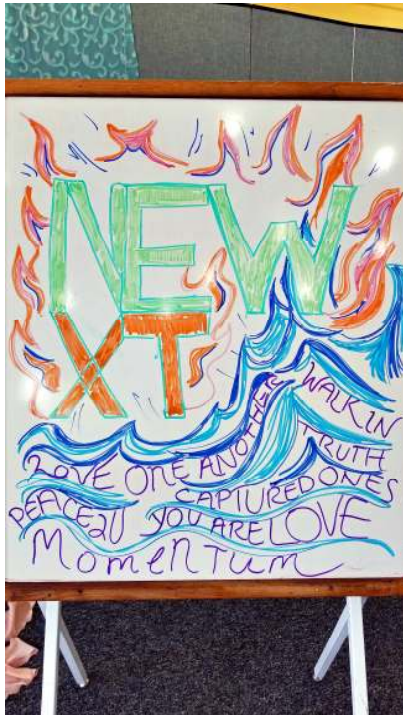 NEW
XT
WALK IN
TRUTH
LOVE ONE ANOTHER
CAPTURED ONES
PEACE 2U YOU ARE LOVE
MOMENTUM